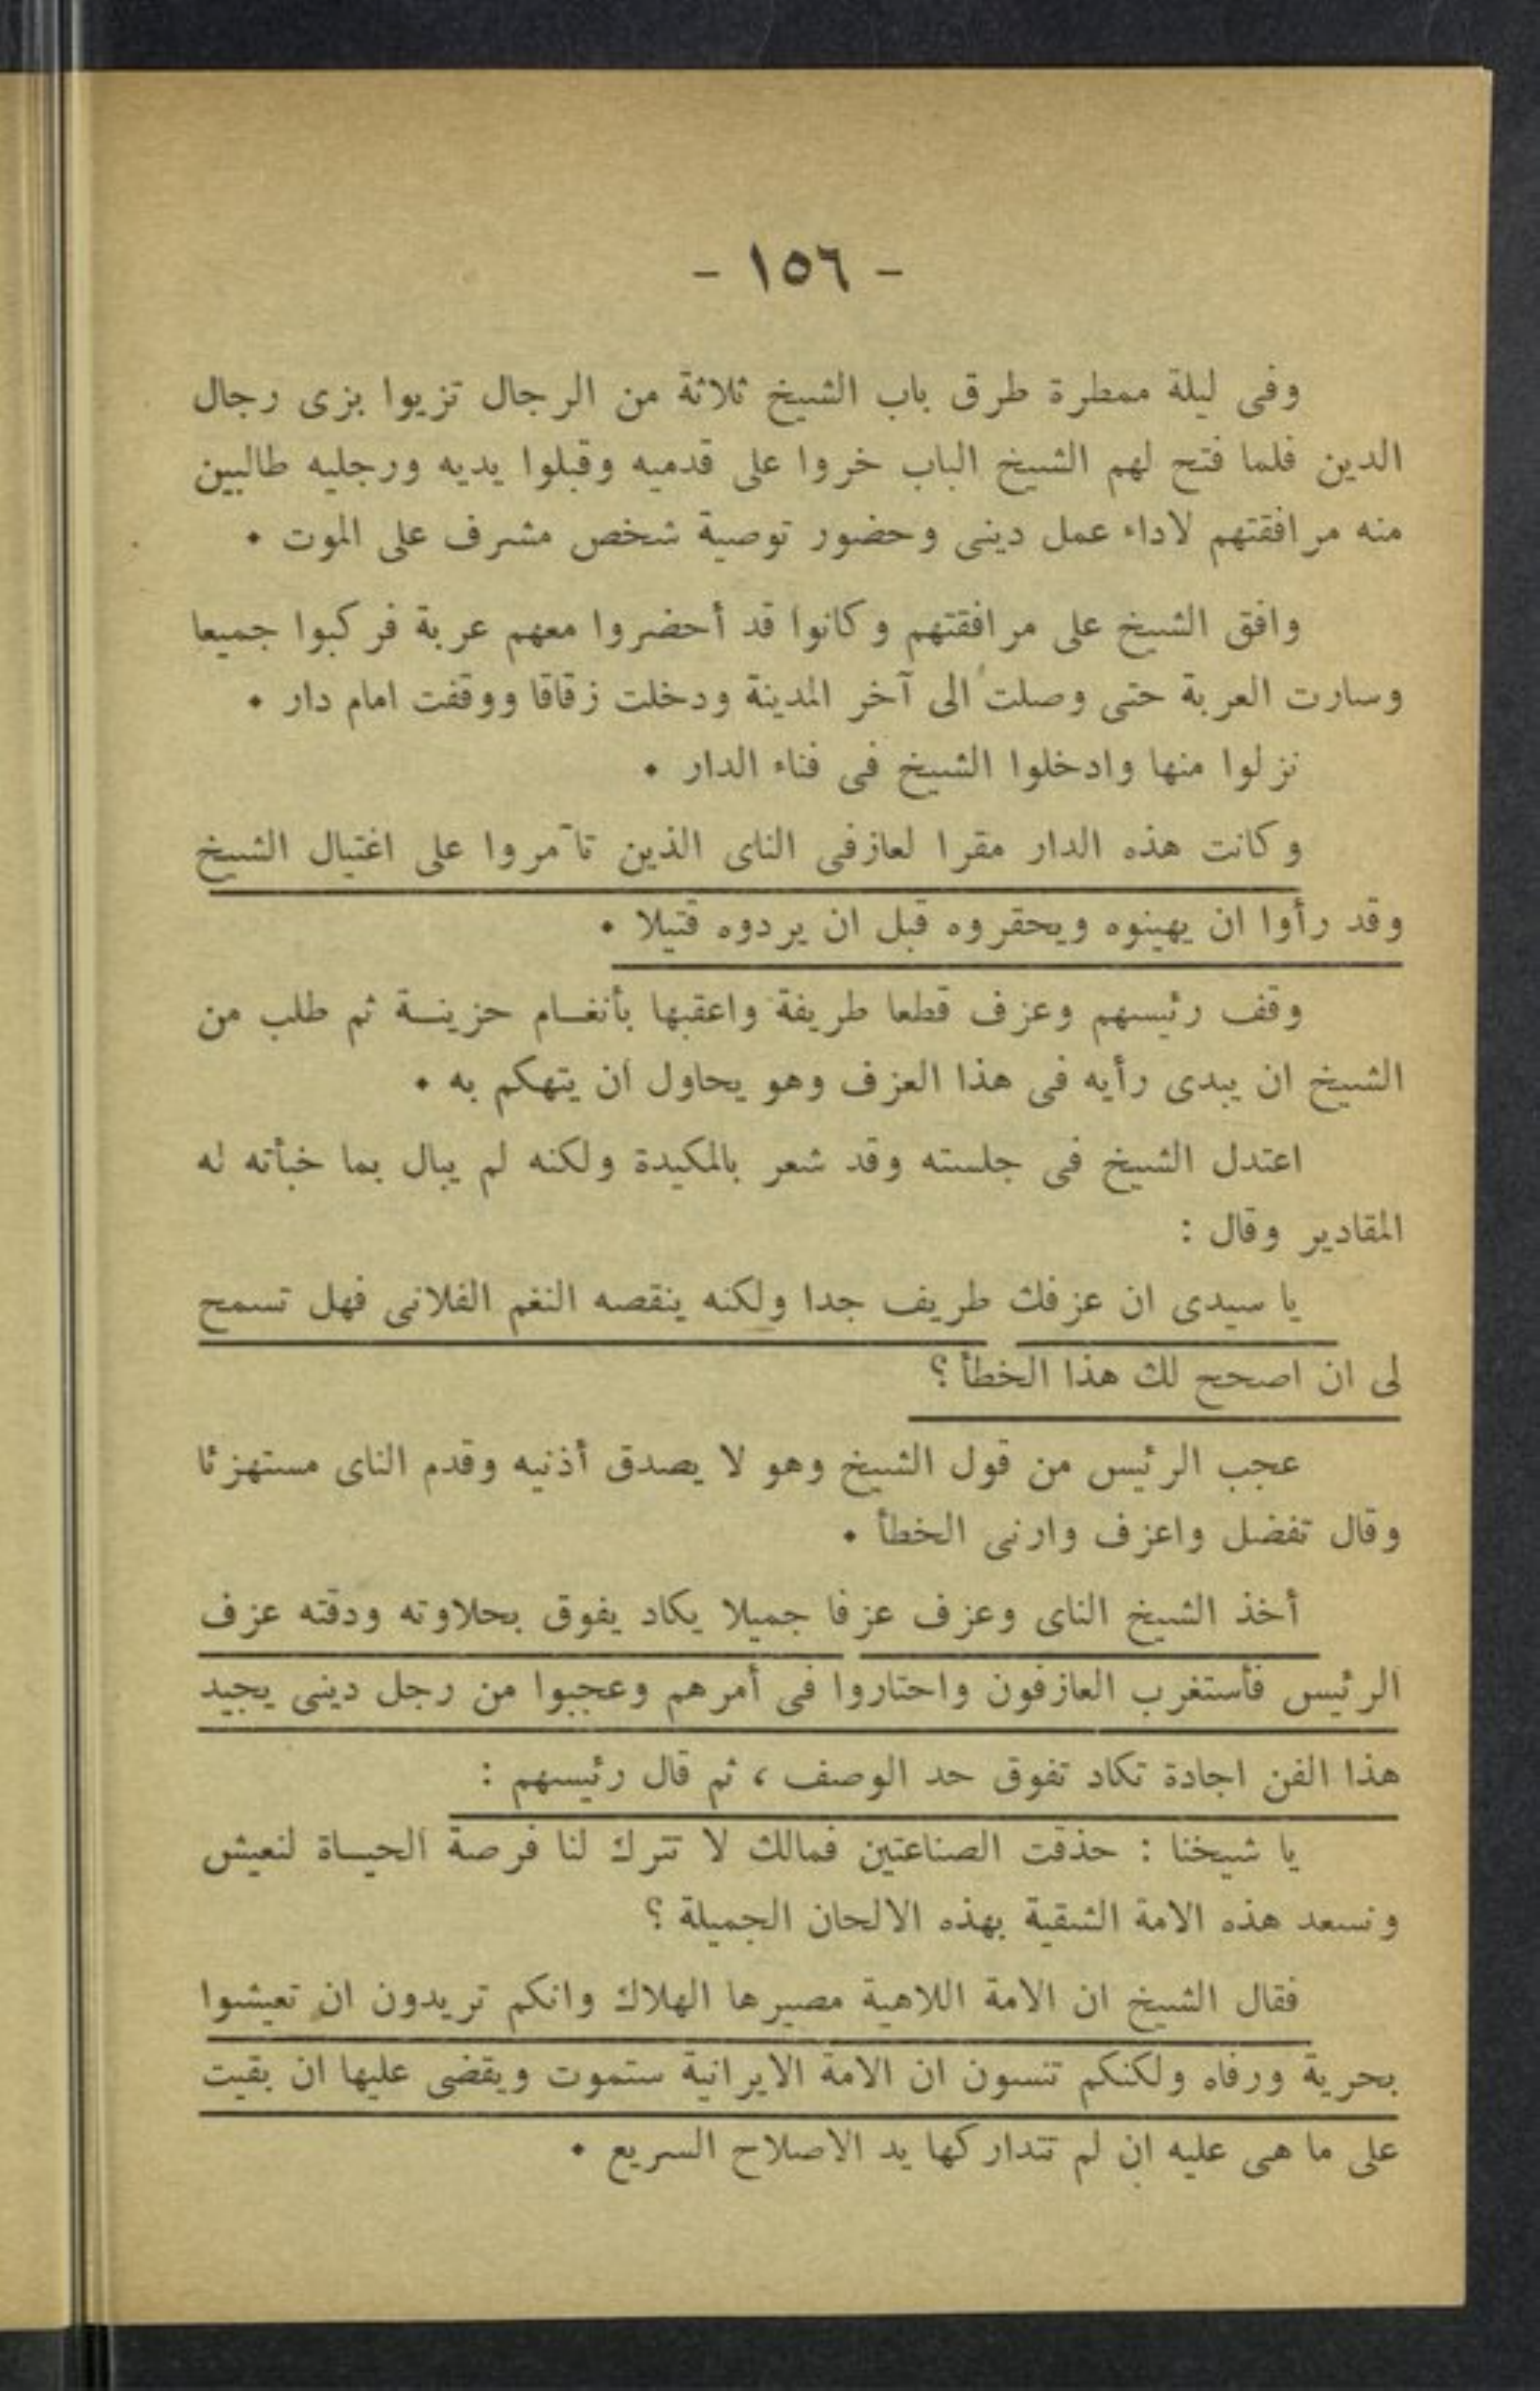 - ١٥٦ -
وفى ليلة ممطرة طرق باب الشيخ ثلاثة من الرجال تزيوا بزى رجال
الدين فلما فتح لهم الشيخ الباب خروا على قدميه وقبلوا يديه ورجليه طالبين
منه مرافقتهم لاداء عمل دينى وحضور توصية شخص مشرف على الموت .
وافق الشيخ على مرافقتهم وكانوا قد أحضروا معهم عربة فركبوا جميعا
وسارت العربة حتى وصلت الى آخر المدينة ودخلت زقاقا ووقفت امام دار .
نزلوا منها وادخلوا الشيخ فى فناء الدار .
وكانت هذه الدار مقرا لعازفى الناى الذين تآمروا على اغتيال الشيخ
وقد رأوا ان يهينوه ويحقروه قبل ان يردوه قتيلا .
وقف رئيسهم وعزف قطعا طريفة واعقبها بأنغـام حزينـة ثم طلب من
الشيخ ان يبدى رأيه فى هذا العزف وهو يحاول ان يتهكم به .
اعتدل الشيخ فى جلسته وقد شعر بالمكيدة ولكنه لم يبال بما خبأته له
المقادير وقال :
يا سيدى ان عزفك طريف جدا ولكنه ينقصه النغم الفلانى فهل تسمح
لى ان اصحح لك هذا الخطأ ؟
عجب الرئيس من قول الشيخ وهو لا يصدق أذنيه وقدم الناى مستهزئا
وقال تفضل واعزف وارنى الخطأ .
أخذ الشيخ الناى وعزف عزفا جميلا يكاد يفوق بحلاوته ودقته عزف
الرئيس فأستغرب العازفون واحتاروا فى أمرهم وعجبوا من رجل دينى يجيد
هذا الفن اجادة تكاد تفوق حد الوصف ، ثم قال رئيسهم :
يا شيخنا : حذقت الصناعتين فمالك لا تترك لنا فرصة الحيـاة لنعيش
ونسعد هذه الامة الشقية بهذه الالحان الجميلة ؟
فقال الشيخ ان الامة اللاهية مصيرها الهلاك وانكم تريدون ان تعيشوا
بحرية ورفاه ولكنكم تنسون ان الامة الايرانية ستموت ويقضى عليها ان بقيت
على ما هى عليه ان لم تتداركها يد الاصلاح السريع .